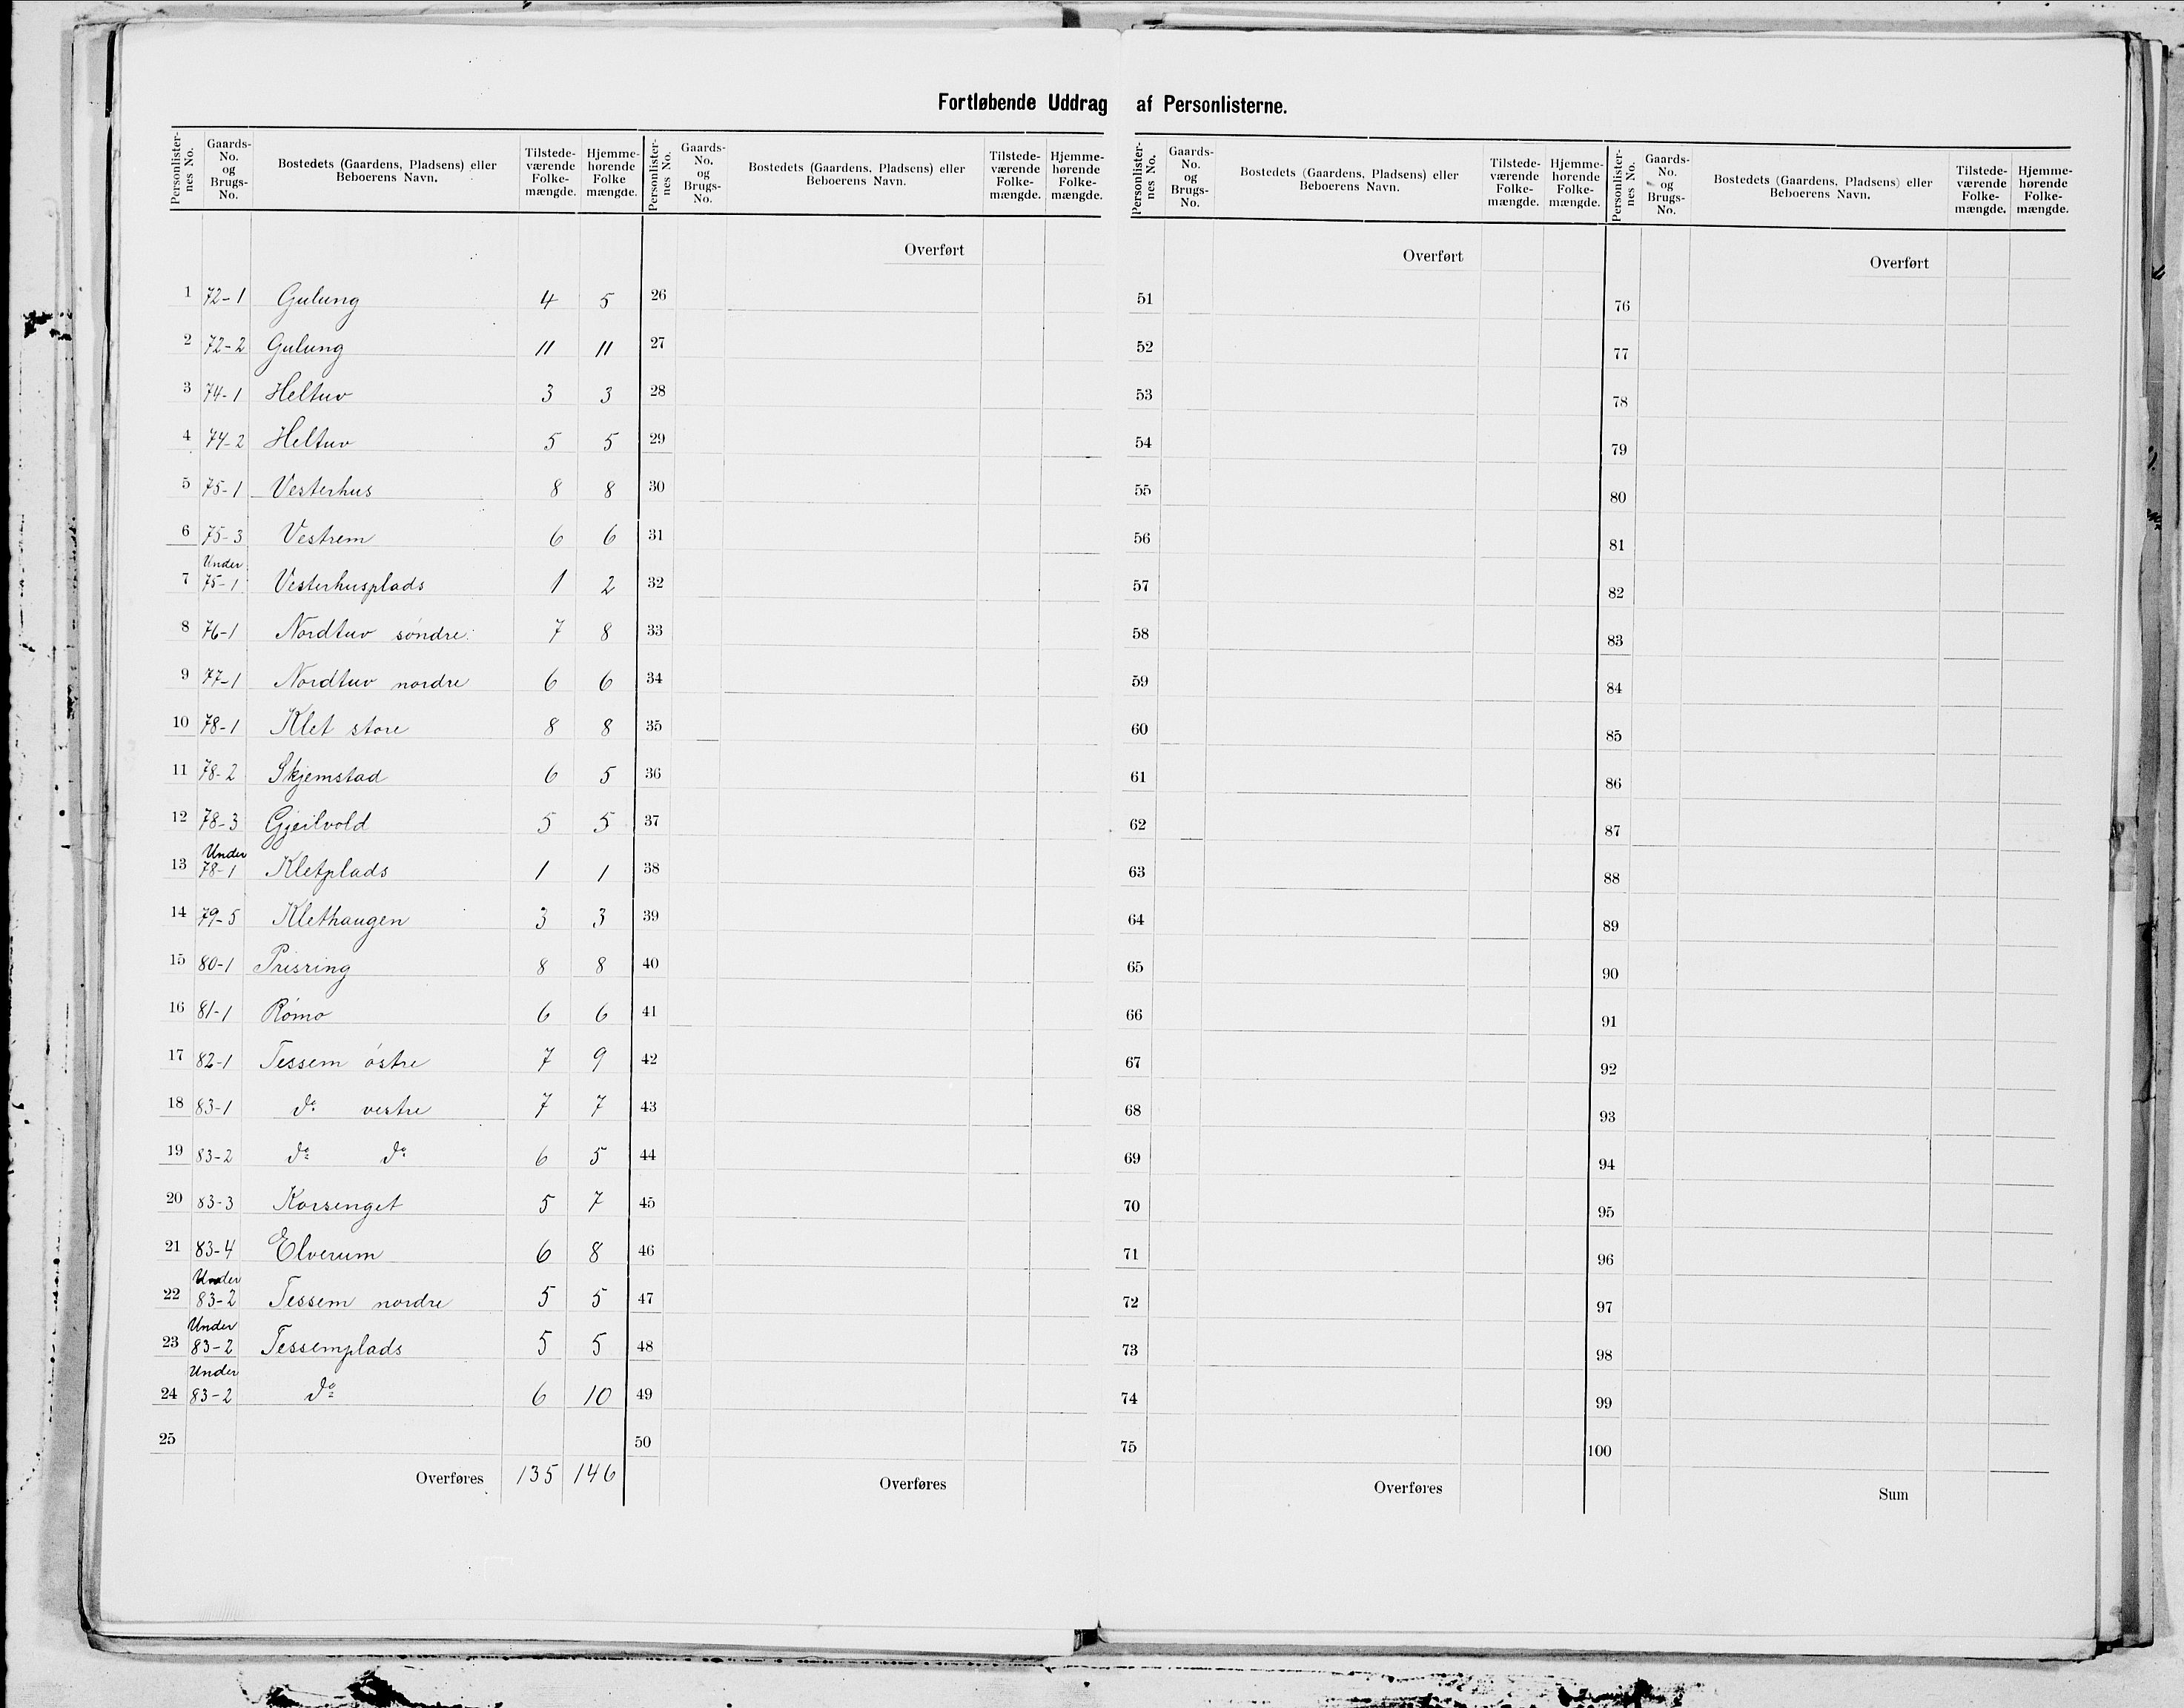 Fortløbende Uddrag af Personlisterne.
Personlisternes No. | Gaards-No. og Brugs-No. | Bostedets (Gaardens, Pladsens) eller Beboerens Navn. | Tilstedeværende Folkemængde. | Hjemmehørende Folkemængde.
1 72-1 Gulung 4 5
2 72-2 Gulung 11 11
3 74-1 Heltuv 3 3
4 74-2 Heltuv 5 5
5 75-1 Vesterhus 8 8
6 75-3 Vestrem 6 6
7 Under 75-1 Vesterhusplads 1 2
8 76-1 Nordtuv søndre 7 8
9 77-1 Nordtuv nordre 6 6
10 78-1 Klet store 8 8
11 78-2 Skjemstad 6 5
12 78-3 Gjeilvold 5 5
13 Under 78-1 Kletplads 1 1
14 79-5 Klethaugen 3 3
15 80-1 Prisring 8 8
16 81-1 Rømo 6 6
17 82-1 Tessem østre 7 9
18 83-1 do vestre 7 7
19 83-2 do do 6 5
20 83-3 Korsenget 5 7
21 83-4 Elverum 6 8
22 Under 83-2 Tessem nordre 5 5
23 Under 83-2 Tessemplads 5 5
24 Under 83-2 do 6 10
25
Overføres 135 146
Personlisternes No. | Gaards-No. og Brugs-No. | Bostedets (Gaardens, Pladsens) eller Beboerens Navn. | Tilstedeværende Folkemængde. | Hjemmehørende Folkemængde.
Overført
26
27
28
29
30
31
32
33
34
35
36
37
38
39
40
41
42
43
44
45
46
47
48
49
50
Overføres
Personlisternes No. | Gaards-No. og Brugs-No. | Bostedets (Gaardens, Pladsens) eller Beboerens Navn. | Tilstedeværende Folkemængde. | Hjemmehørende Folkemængde.
Overført
51
52
53
54
55
56
57
58
59
60
61
62
63
64
65
66
67
68
69
70
71
72
73
74
75
Overføres
Personlisternes No. | Gaards-No. og Brugs-No. | Bostedets (Gaardens, Pladsens) eller Beboerens Navn. | Tilstedeværende Folkemængde. | Hjemmehørende Folkemængde.
Overført
76
77
78
79
80
81
82
83
84
85
86
87
88
89
90
91
92
93
94
95
96
97
98
99
100
Sum